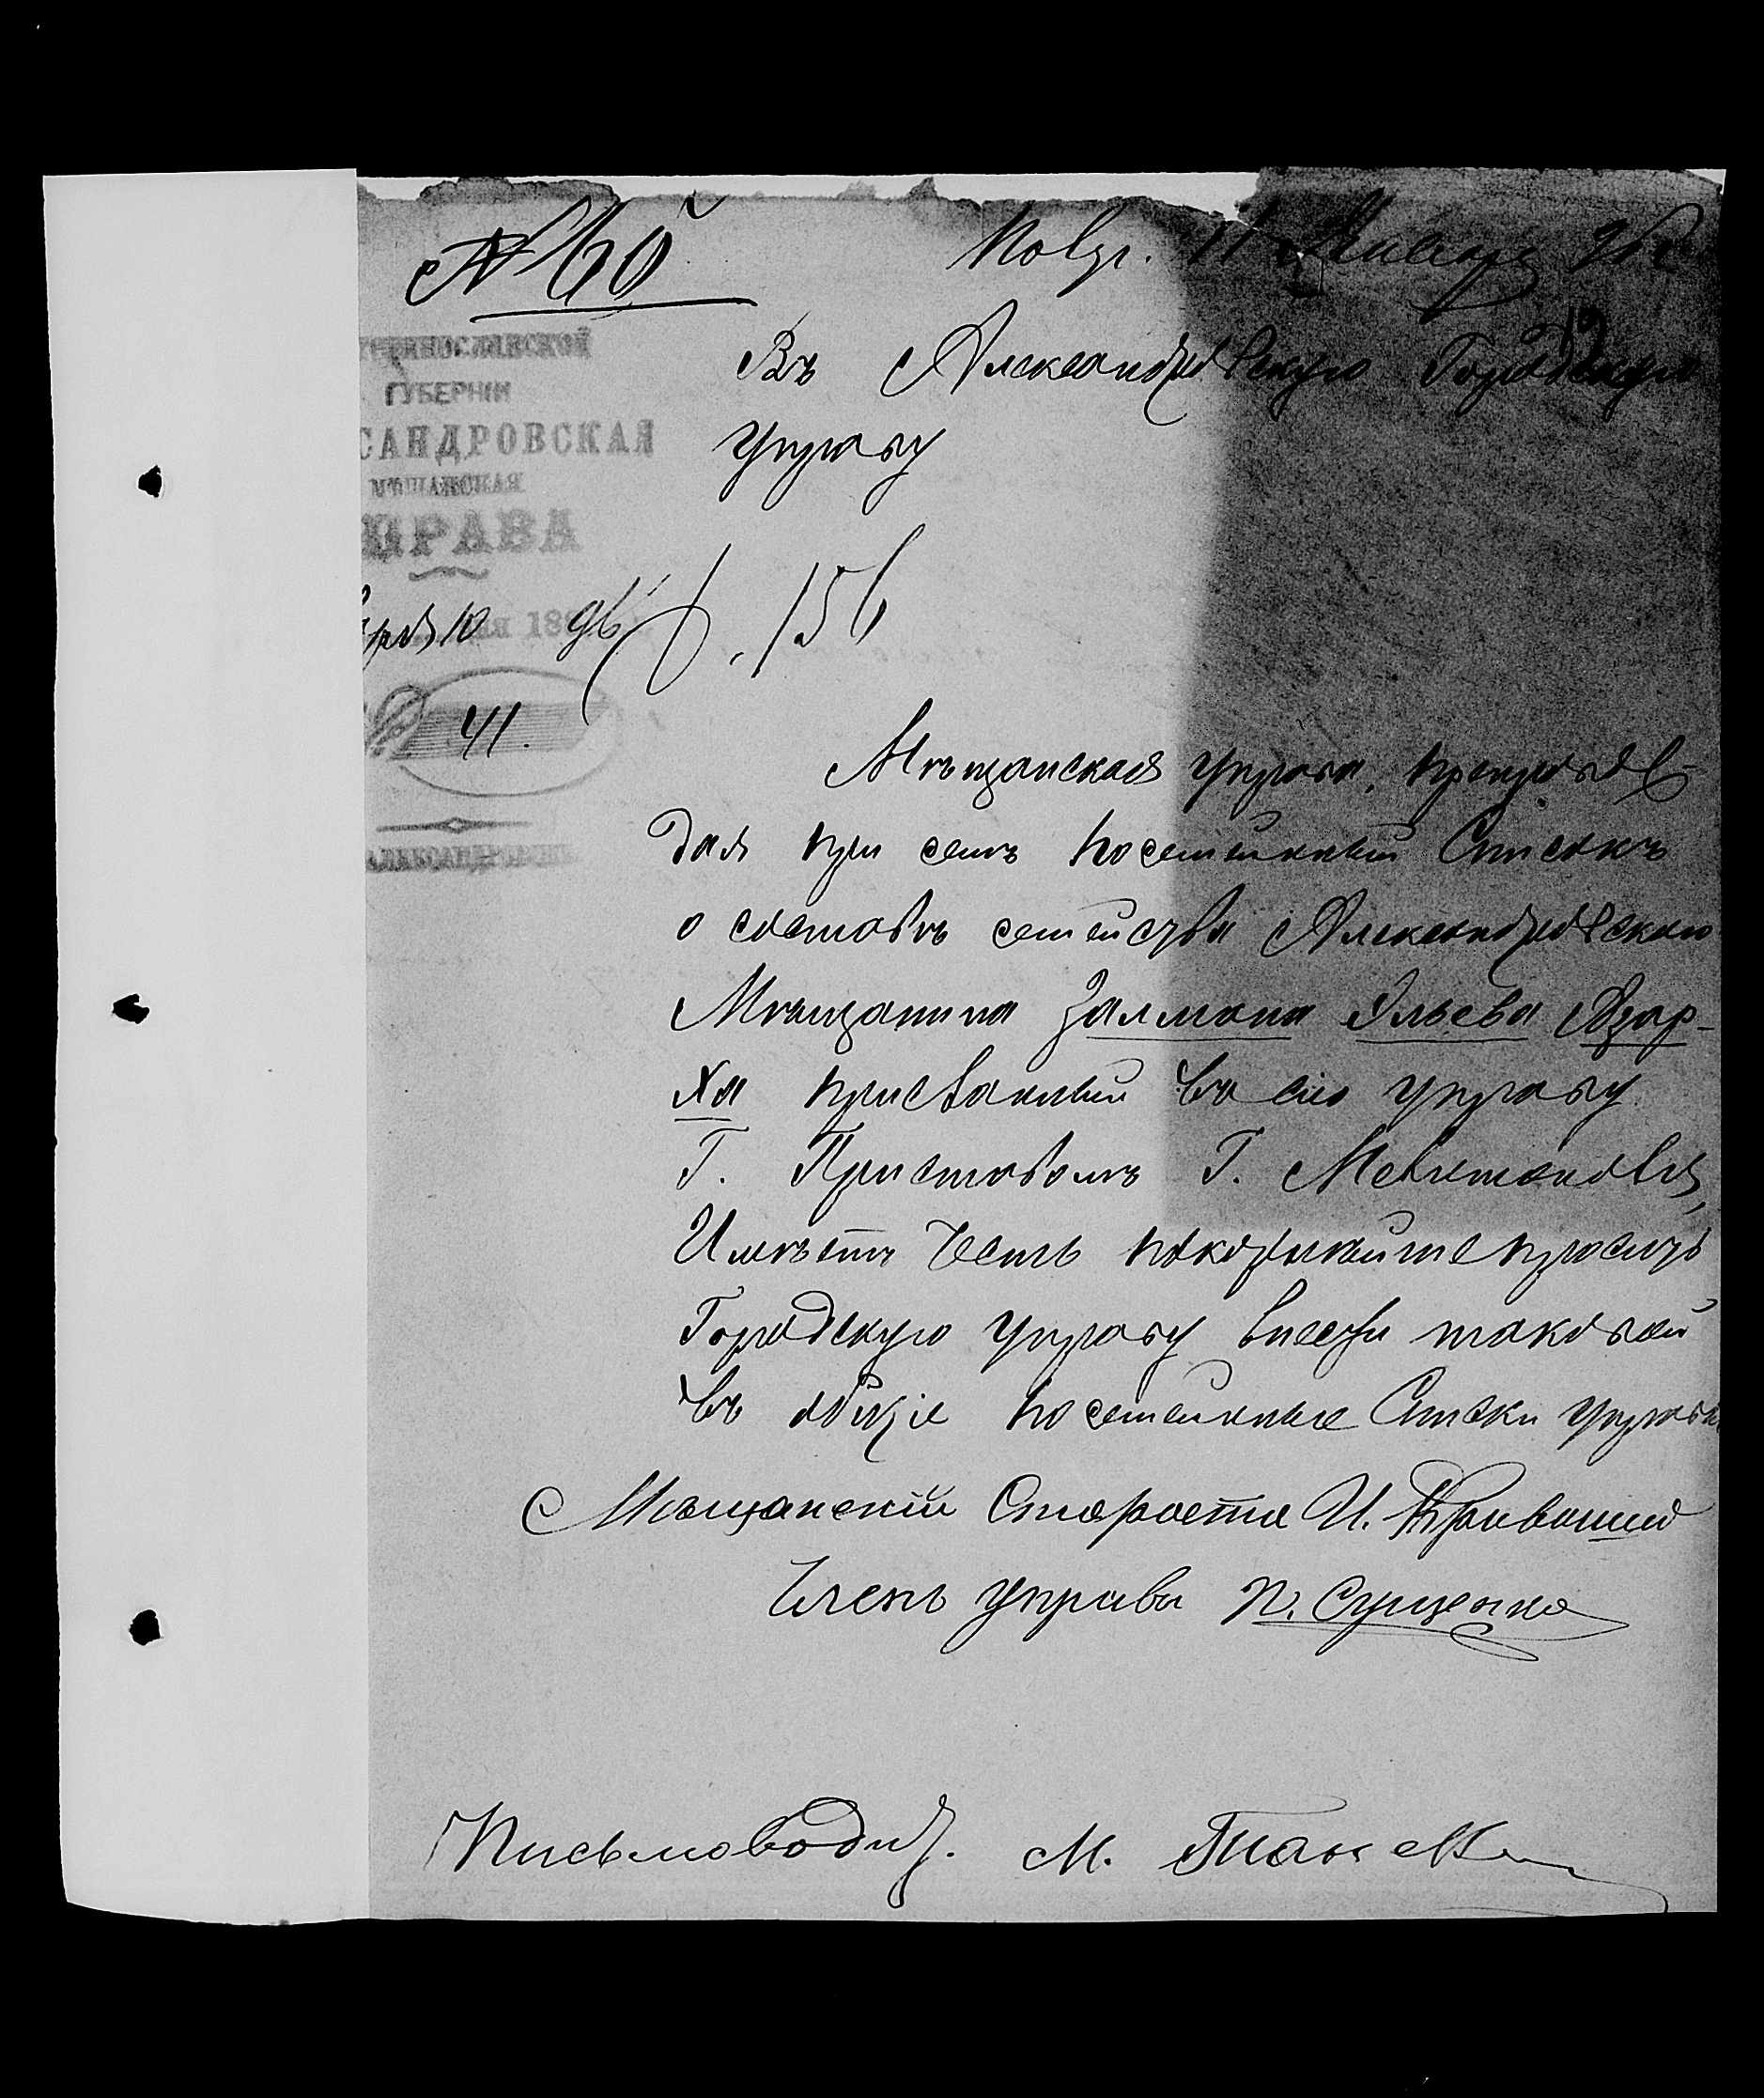 № 60
Получ. 11 Января 96 г.
19
Въ Александровскую Городскую
Управу
ТЕРИНОСЛАВСКОЙ
ГУБЕРНІИ
САНДРОВСКАЯ
МѢЩАНСКАЯ
УПРАВА
10 189 96
41.
АЛЕКСАНДРОВСКЪ
156
Мѣщанская управа, препровож-
дая при семъ посемейный Списокъ
о составѣ семейства Александровскаго
Мѣщанина Залмана Эльева Азар-
ха присланный въ сію управу
Г. Приставомъ Г. Мелитополя,
Имѣетъ честь покорнѣйше просить
Городскую управу внести таковой
въ общіе посемейные Списки управы
Мѣщанскій Староста И.
Членъ управы П. Сущенко
Письмоводит. М.